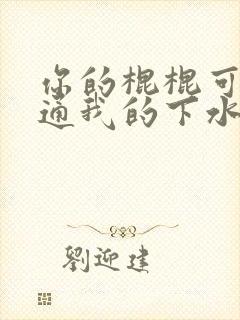 你的棍棍可
通我的下水
劉迎建